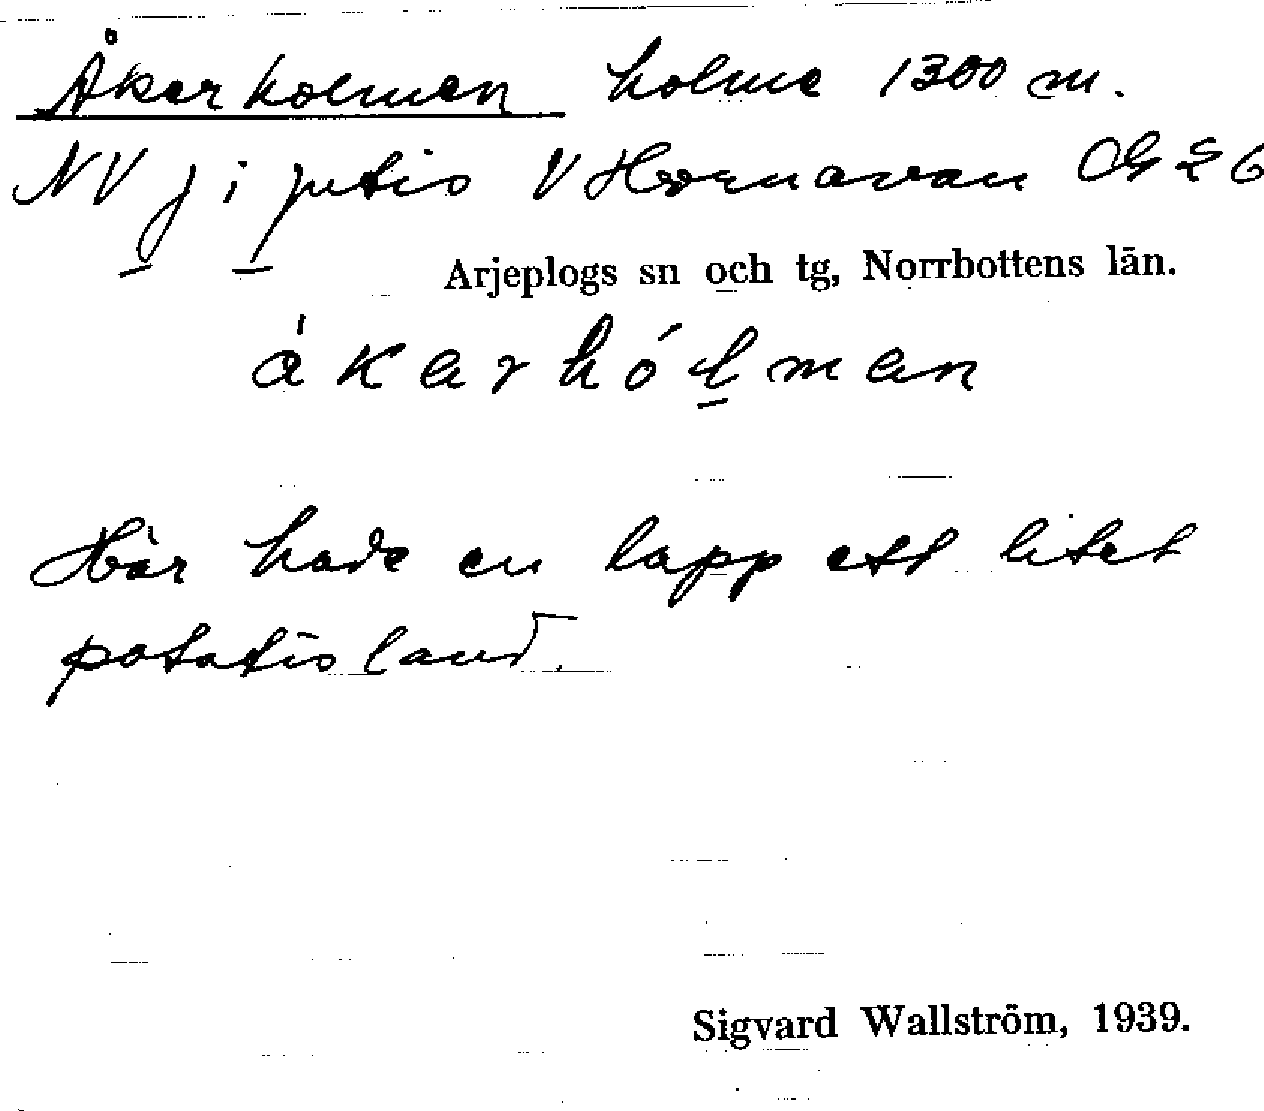 Åkerholmen holme 1300 m.
NV j i V Hornavan
Arjeplogs sn och tg, Norrbottens län.
åkarhólman
Här hade en lapp ett litet
potatisland.
Sigvard Wallström, 1939.